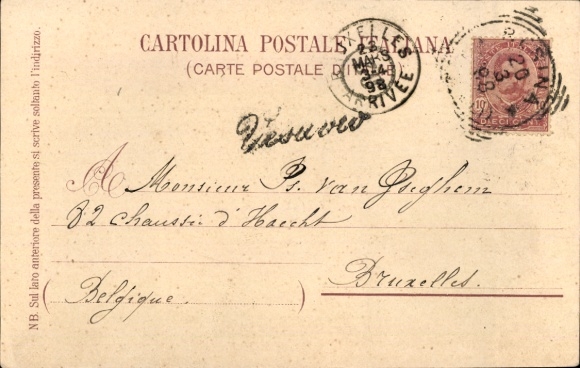 CARTOLINA POSTALE ITALIANA
(CARTE POSTALE D'ITALIE)
XELLES
23
MARS
98
ARRIVÉE
SINA
20
3
98
10
DIECI
Vesuvio
A Monsieur Ps. van Iseghem
82 chaussée d'Haecht
Bruxelles.
(Belgique.)
NB. Sul lato anteriore della presente si scrive soltanto l'indirizzo.